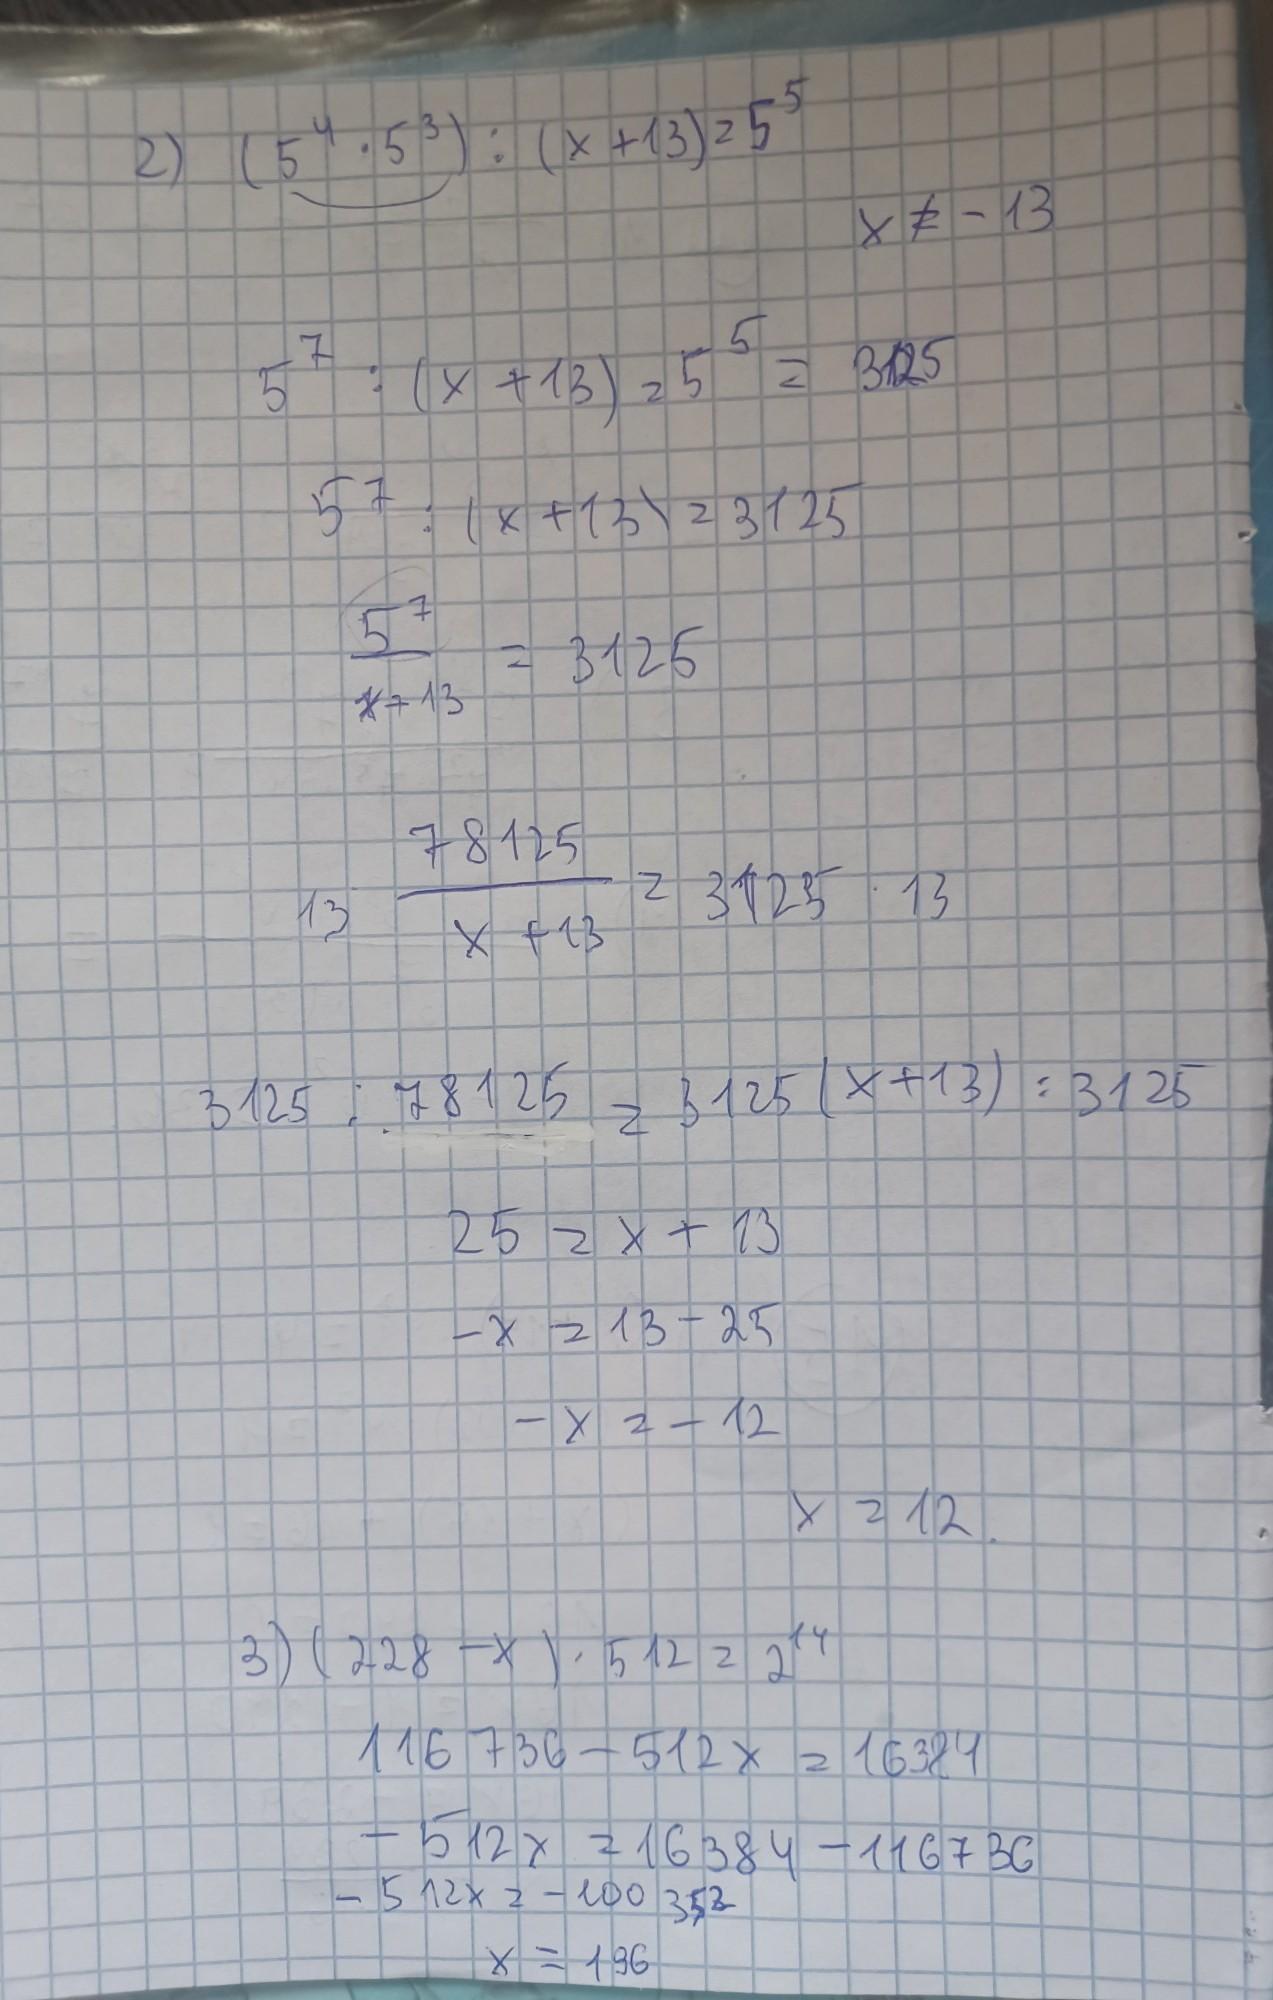 2) (5⁴ · 5³) : (x + 13) = 5⁵
x ≠ - 13
5⁷ : (x + 13) = 5⁵ = 3125
5⁷ : (x + 13) = 3125
5⁷
x + 13
= 3125
78125
13
x + 13
= 3125 · 13
3125 : 78125 = 3125 (x + 13) : 3125
25 = x + 13
-x = 13 - 25
-x = - 12
x = 12.
3) (228 - x) · 512 = 2¹⁴
116 736 - 512x = 16384
- 512x = 16384 - 116736
- 512x = - 100 352
x = 196